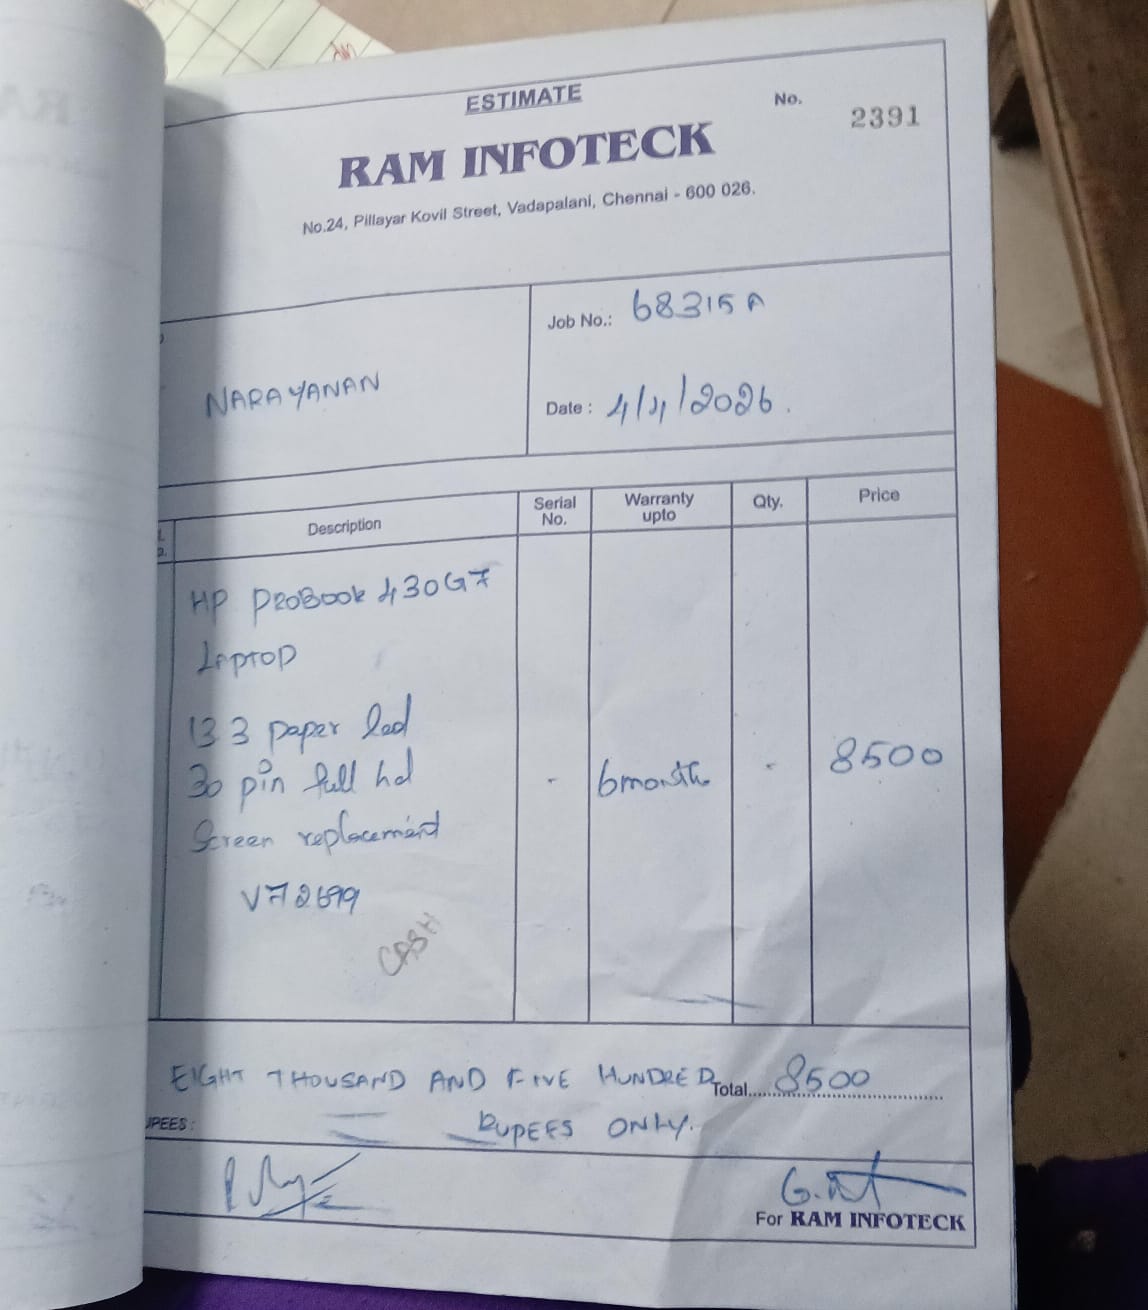 ESTIMATE
No.
2391
RAM INFOTECK
No.24, Pillayar Kovil Street, Vadapalani, Chennai - 600 026.
NARAYANAN
Job No.: 68315 A
Date : 4/4/2026.
Description
Serial No.
Warranty upto
Qty.
Price
HP PROBOOK 430G7
LAPTOP
13 3 paper led
30 pin full hd
Screen replacement
- 6month - 8500
V72699
CASH
EIGHT THOUSAND AND FIVE HUNDRED Total 8500
UPEES : RUPEES ONLY.
For RAM INFOTECK